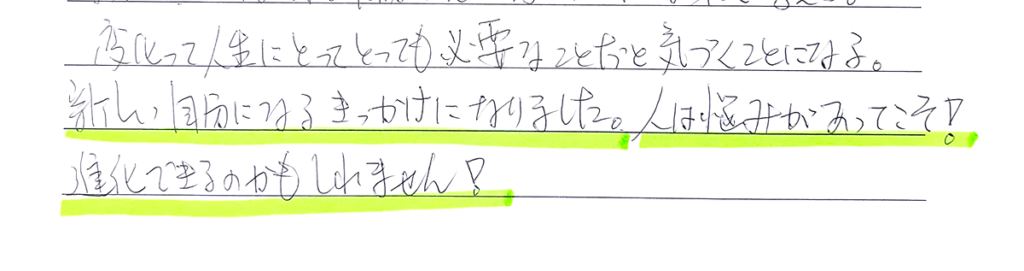 変化って人生にとってとっても必要なことだと気づくことになる。
新しい自分になるきっかけになりました。人は悩みがあってこそ!
進化できるのかもしれません!